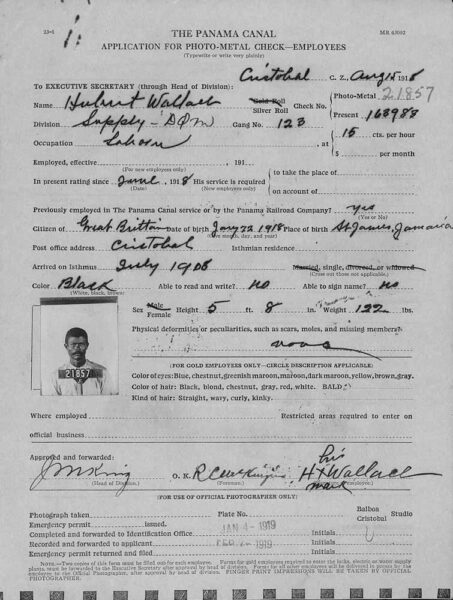 23-1 THE PANAMA CANAL MR 43002
APPLICATION FOR PHOTO-METAL CHECK—EMPLOYEES
(Typewrite or write very plainly)
Cristobal C. Z., Aug 15 1918
TO EXECUTIVE SECRETARY (through Head of Division):
Name Hubert Wallach Gold Roll Silver Roll Check No. Photo-Metal 21857
Present 168983
Division Supply - Gang No. 123
Occupation Laborer, at 15 cts. per hour
$ per month
Employed, effective, 191
(For new employees only)
to take the place of
In present rating since June 1, 1918 His service is required
(Dates) (New employees only)
on account of
Previously employed in The Panama Canal service or by the Panama Railroad Company? yes
(Yes or No)
Citizen of Great Brittan Date of birth Jany 22 1918 Place of birth St James, Jamaica
(Give month, day, and year)
Post office address Cristobal Isthmian residence
Arrived on Isthmus July 1906 Married, single, divorced, or widowed
(Cross out those not applicable)
Color Black Able to read and write? no Able to sign name? no
(White, black, brown)
Sex Male Female Height 5 ft. 8 in. Weight 122 lbs.
Physical deformities or peculiarities, such as scars, moles, and missing members?
21857
(FOR GOLD EMPLOYEES ONLY)—CIRCLE DESCRIPTION APPLICABLE:
Color of eyes: Blue, chestnut, greenish maroon, maroon, dark maroon, yellow, brown, gray.
Color of hair: Black, blond, chestnut, gray, red, white. BALD
Kind of hair: Straight, wavy, curly, kinky.
Where employed Restricted areas required to enter on
official business
Approved and forwarded:
his
O. K. H X Wallach
mark
(Head of Division.) (Foreman.) (Employee.)
(FOR USE OF OFFICIAL PHOTOGRAPHER ONLY)
Photograph taken Plate No. Balboa Cristobal Studio
Emergency permit issued.
Completed and forwarded to Identification Office JAN 4 - 1919 Initials
Recorded and forwarded to applicant FEB 1919 Initials
Emergency permit returned and filed Initials
NOTE.—Two copies of this form must be filled out for each employee. Forms for gold employees required to enter the locks, electric or water supply
plants, must be forwarded to the Executive Secretary after approval by head of division. Forms for all other employees will be delivered in person by the
employee to the Official Photographer, after approval by head of division. FINGER PRINT IMPRESSIONS WILL BE TAKEN BY OFFICIAL
PHOTOGRAPHER.